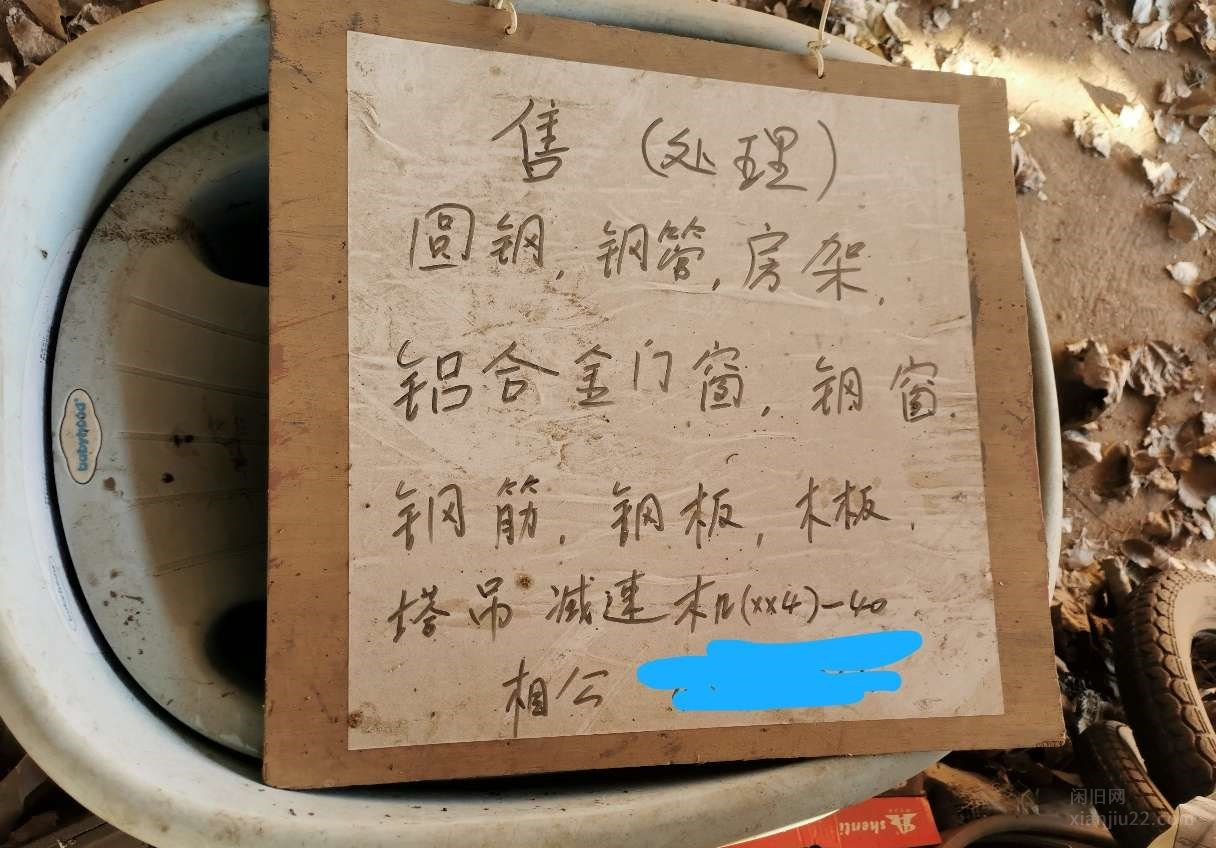 售 (处理)
圆钢, 钢管, 房架,
铝合金门窗, 钢窗.
钢筋, 钢板, 木板,
塔吊减速机(xx4)-40
相公
babyhood
shenti
闲旧网
xianjiu22.com